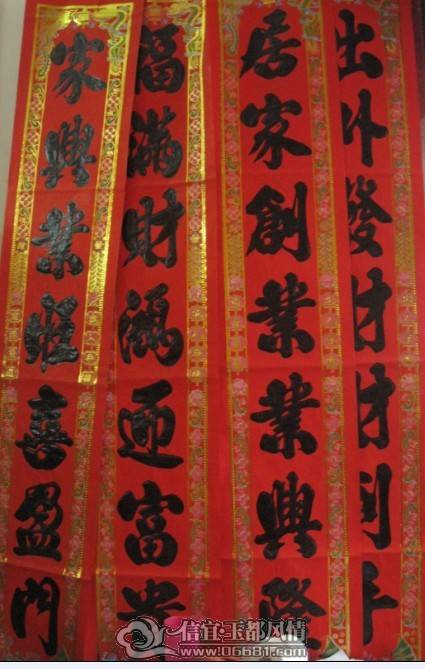 出外發財財利
居家創業業興隆
福滿財源迎富貴
家興業旺喜盈門
信宜·玉都风情
www.06681.com